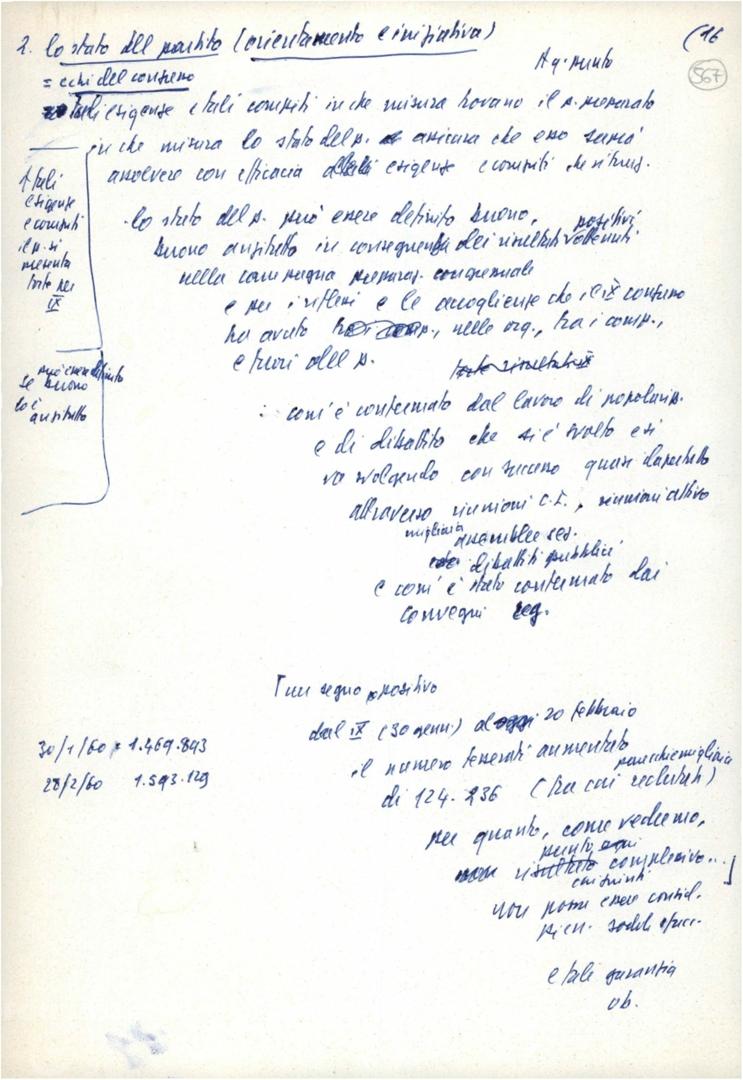 (16
567
2. lo stato del partito (orientamento e iniziativa)
= echi del congresso
Ag. punto
Tali esigenze e tali compiti in che misura trovano il p. preparato
in che misura lo stato del p. assicura che esso saprà
assolvere con efficacia a tali esigenze e compiti
A tali
esigenze
e compiti
il p. si
presenta
forte per
IX
lo stato del p. può essere definito buono,
positivi
buono anzitutto in conseguenza dei risultati ottenuti
nella campagna preparaz. congressuale
e per i riflessi e le accoglienze che il IX congresso
ha avuto nelle org., tra i comp.,
e fuori del p.
può essere definito
se buono
lo è
anzitutto
com'è confermato dal lavoro di popolariz.
e di dibattito che si è svolto e si
va svolgendo con successo quasi dapertutto
attraverso riunioni C.F., riunioni attivo
migliaia
assemblee sez.
dibattiti pubblici
e com'è stato confermato dai
convegni reg.
[un segno positivo
dal IX (30 genn.) al 20 febbraio
30/1/60 = 1.469.893
il numero tesserati aumentato
parecchie migliaia
28/2/60 1.593.129
di 124.236 (tra cui reclutati)
per quanto, come vedremo,
punto oggi
risultato complessivo...]
non possa essere consid.
pien. soddisfac.
e tali garanzia
ob.